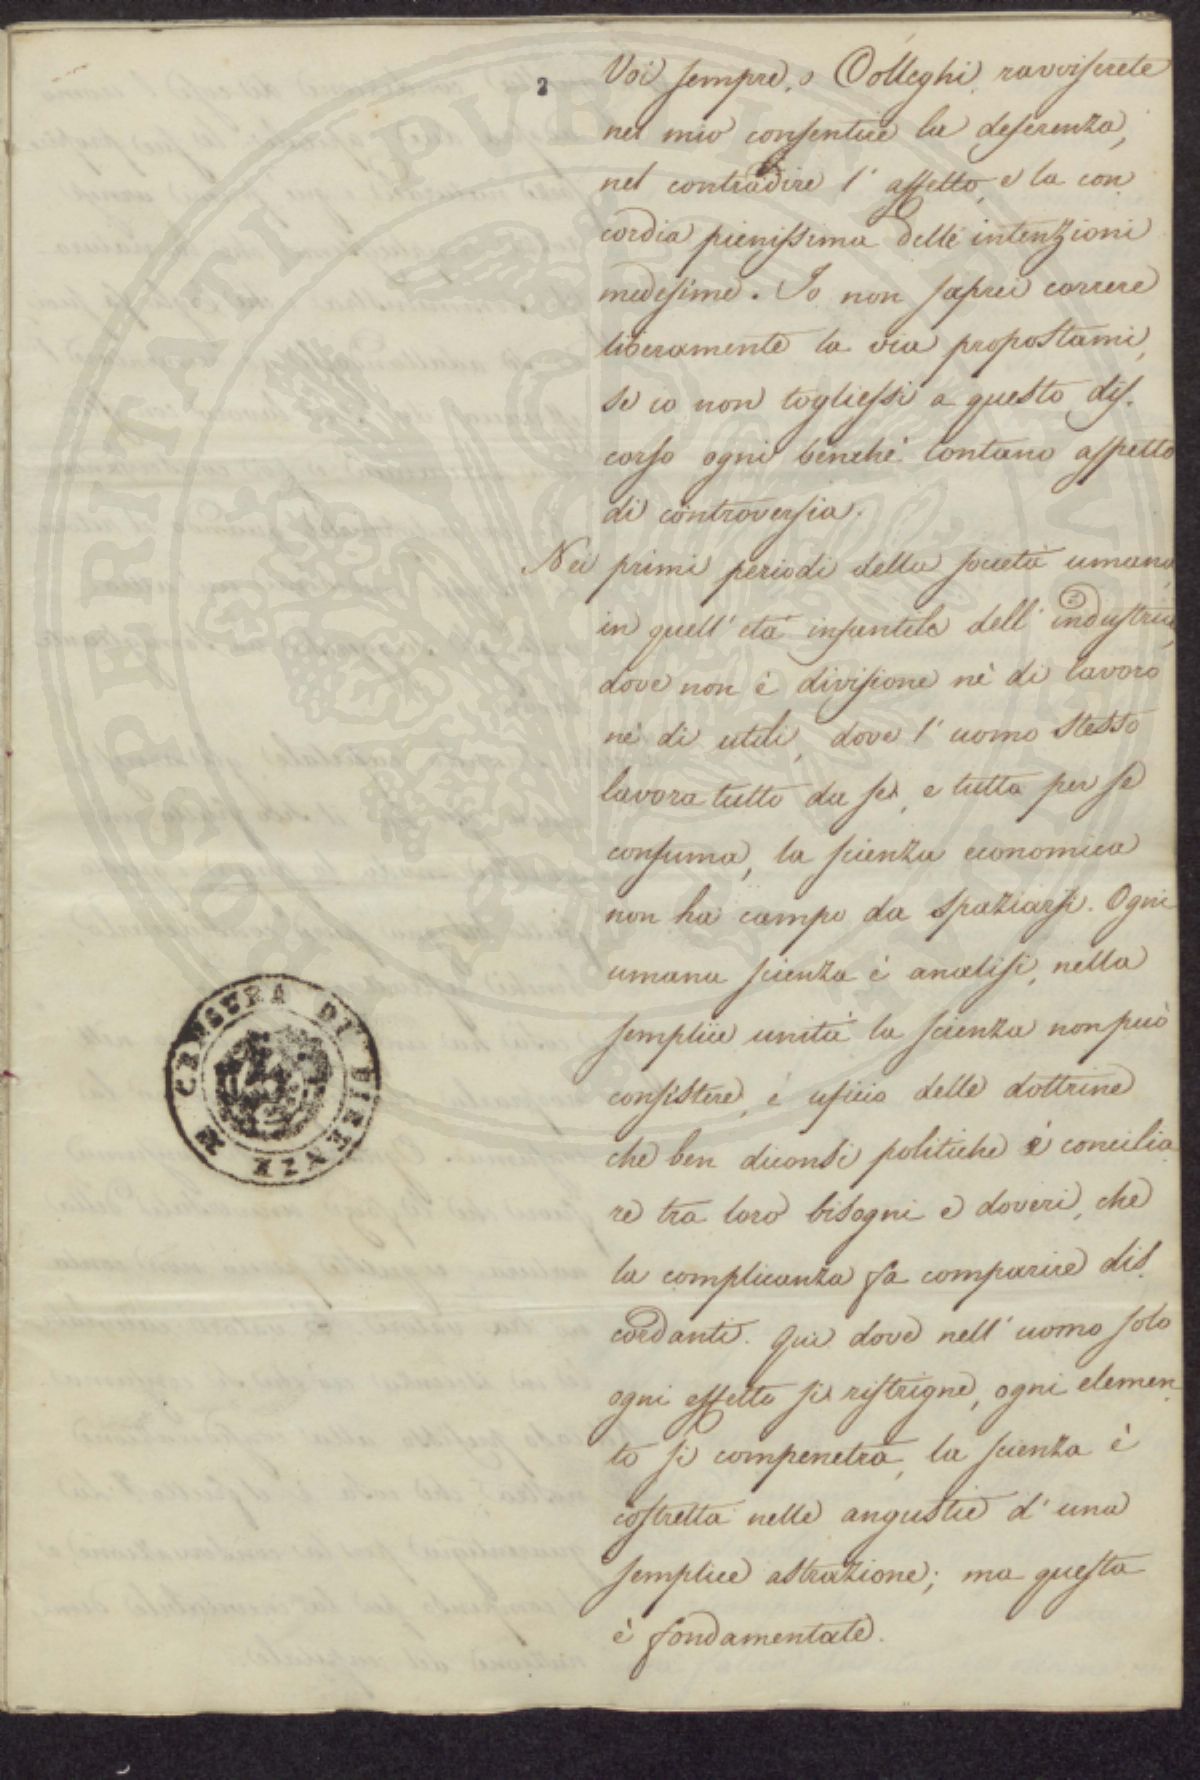 2
Voi sempre, o Colleghi, ravviserete
nel mio consentire la deferenza,
nel contradire l' affetto, e la con
cordia pienissima delle intenzioni
medesime. Io non saprei correre
liberamente la via propostami,
se io non togliessi a questo dis.
corso ogni benchè lontano aspetto
di controversia.
Nei primi periodi della società umana,
in quell' età infantile dell' industria,
dove non è divisione nè di lavoro
nè di utili, dove l' uomo stesso
lavora tutto da se, e tutto per se
consuma, la scienza economica
non ha campo da spaziarsi. Ogni
umana scienza è analisi, nella
semplice unità la scienza non può
consistere, e uficio delle dottrine
che ben diconsi politiche è concilia
re tra loro bisogni e doveri, che
la complicanza fa comparire dis.
cordanti. Qui dove nell' uomo solo
ogni effetto si ristrigne, ogni elemen
to si compenetra, la scienza è
costretta nelle angustie d' una
semplice astrazione; ma questa
è fondamentale.
CENSURA DI FIRENZE
PROSPERITATI PUBLICAE